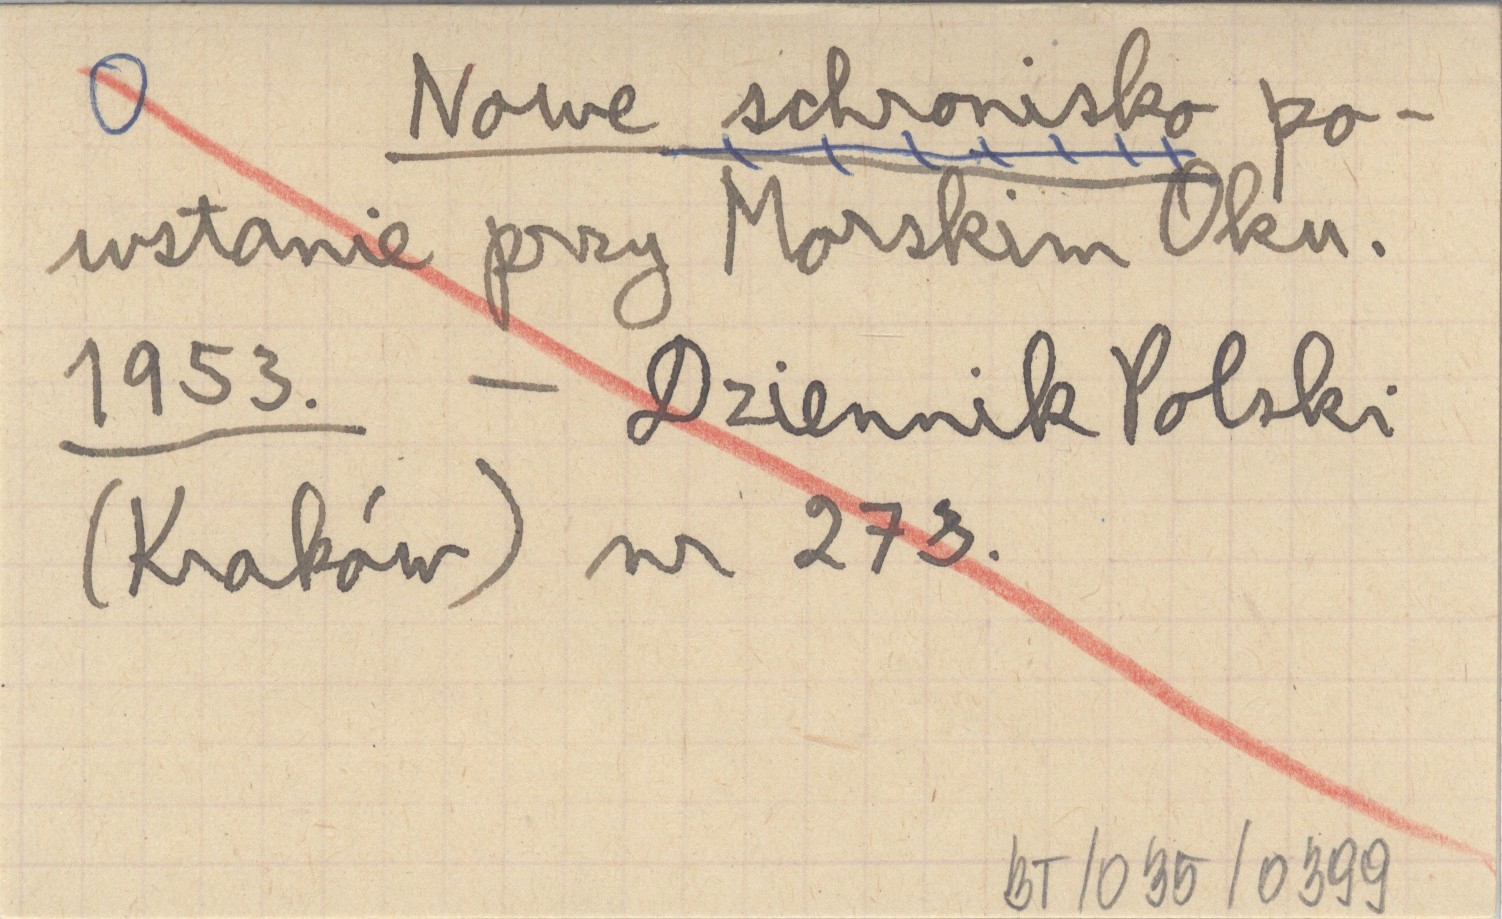 O
Nowe schronisko po-
wstanie przy Morskim Oku.
1953. — Dziennik Polski
(Kraków) nr 273.
BT/035/0399